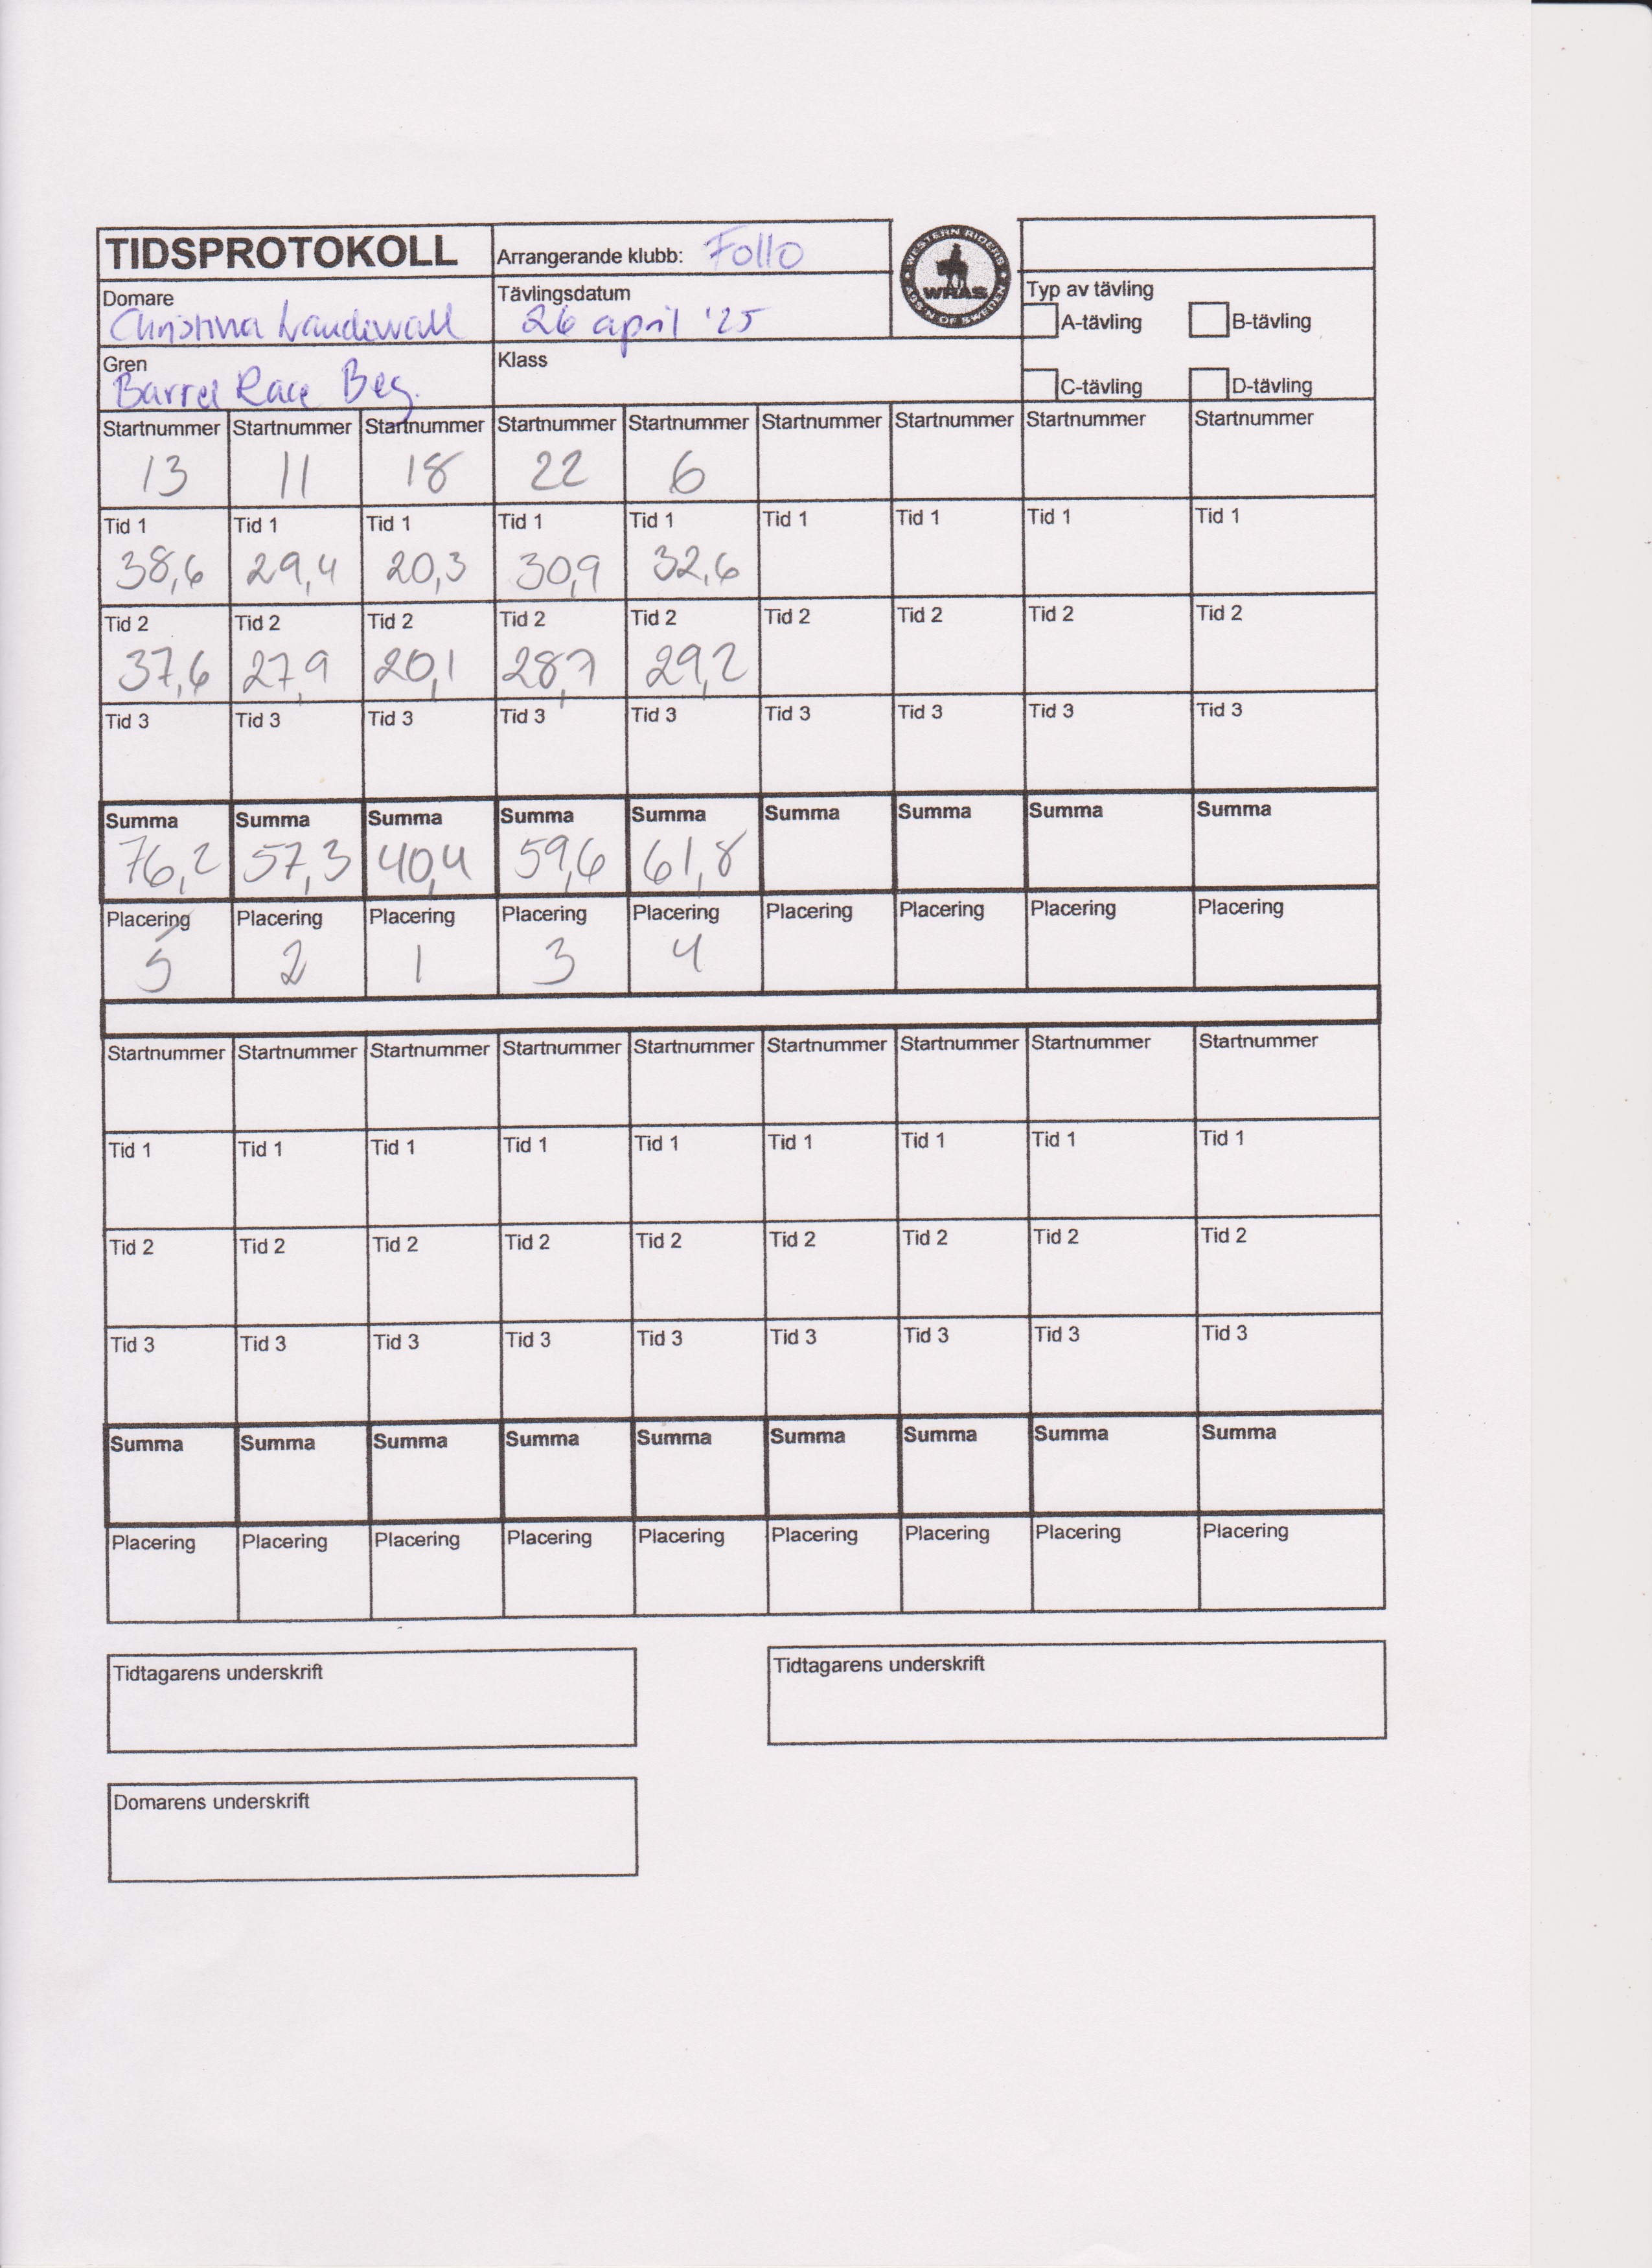 TIDSPROTOKOLL
Arrangerande klubb: Follo
WESTERN RIDERS
WRAS
ASS'N OF SWEDEN
Domare
Christina
Tävlingsdatum
26 april '25
Typ av tävling
A-tävling B-tävling
Gren
Barrel Race Beg.
Klass
C-tävling D-tävling
Startnummer Startnummer Startnummer Startnummer Startnummer Startnummer Startnummer Startnummer Startnummer
13 11 18 22 6
Tid 1 Tid 1 Tid 1 Tid 1 Tid 1 Tid 1 Tid 1 Tid 1 Tid 1
38,6 29,4 20,3 30,9 32,6
Tid 2 Tid 2 Tid 2 Tid 2 Tid 2 Tid 2 Tid 2 Tid 2 Tid 2
37,6 27,9 20,1 28,7 29,2
Tid 3 Tid 3 Tid 3 Tid 3 Tid 3 Tid 3 Tid 3 Tid 3 Tid 3
Summa Summa Summa Summa Summa Summa Summa Summa Summa
76,2 57,3 40,4 59,6 61,8
Placering Placering Placering Placering Placering Placering Placering Placering Placering
5 2 1 3 4
Startnummer Startnummer Startnummer Startnummer Startnummer Startnummer Startnummer Startnummer Startnummer
Tid 1 Tid 1 Tid 1 Tid 1 Tid 1 Tid 1 Tid 1 Tid 1 Tid 1
Tid 2 Tid 2 Tid 2 Tid 2 Tid 2 Tid 2 Tid 2 Tid 2 Tid 2
Tid 3 Tid 3 Tid 3 Tid 3 Tid 3 Tid 3 Tid 3 Tid 3 Tid 3
Summa Summa Summa Summa Summa Summa Summa Summa Summa
Placering Placering Placering Placering Placering Placering Placering Placering Placering
Tidtagarens underskrift Tidtagarens underskrift
Domarens underskrift